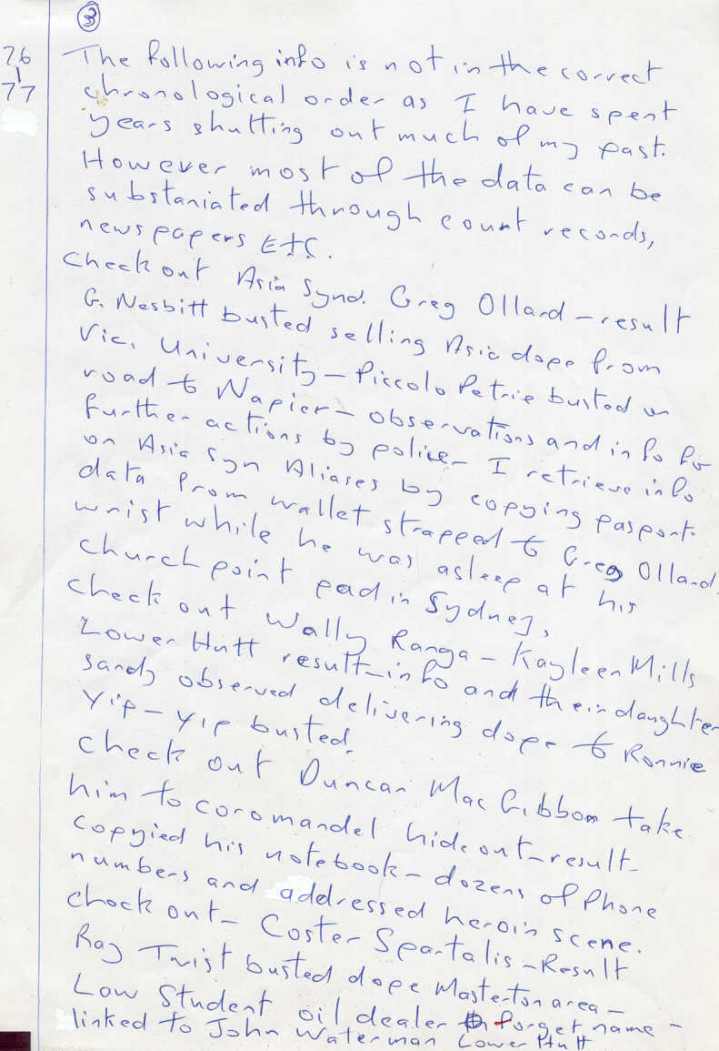 3
76
|
77
The following info is not in the correct
chronological order as I have spent
years shutting out much of my past.
However most of the data can be
substaniated through count records,
newspapers Etc.
Check out Asia Synd. Greg Ollard – result
G. Nesbitt busted selling Asia dope from
Vic. University – Piccolo Petrie busted on
road to Napier – observations and info for
further actions by police – I retrieve info
on Asia Syn Aliases by copying pasport
data from wallet strapped to Greg Ollard.
wrist while he was asleep at his
church point pad in Sydney,
check out Wally Ranga – Kayleen Mills
Lower Hutt result – info and their daughter
sandy observed delivering dope to Ronnie
Yip – Yip busted.
check out Duncan MacGibbon take
him to coromandel hideout – result –
copyied his notebook – dozens of Phone
numbers and addressed heroin scene.
chock out – Coster Spartalis – Result
Ray Twist busted dope Masterton area –
Low Student oil dealer forget name –
linked to John Waterman Lower Hutt